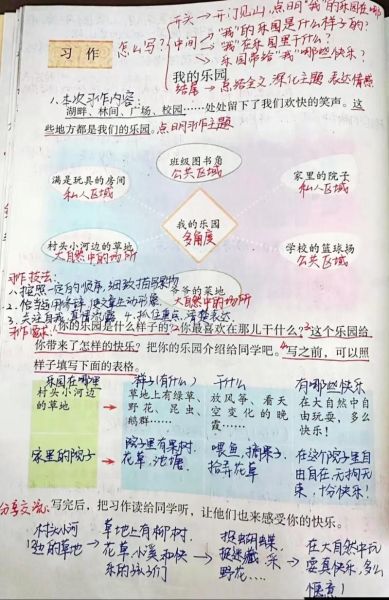 开头→开门见山,点明"我"的乐园在哪
习作
怎么写?
中间→"我"的乐园是什么样子的?
"我"在乐园里干什么?
乐园带给"我"哪些快乐?
我的乐园
结尾→点结全文 深化主题 表达情感
1.本次习作内容:
湖畔、林间、广场、校园……处处留下了我们欢快的笑声。这
些地方都是我们的乐园。点明习作主题
班级图书角
公共区域
满是玩具的房间
私人区域
家里的院子
私人区域
我的乐园
多角度
村头小河边的草地
大自然中的场所
学校的篮球场
公共区域
爷爷的菜地
大自然中的场所
习作技法:
1.按照一定的顺序,细致描写景物
2.恰当运用修辞,使文章生动形象
3.关注自我,真情流露 4.抓住重点,完整表达。
习作要求:你的乐园是什么样子的?2你最喜欢在那儿干什么?3这个乐园给
你带来了怎样的快乐?把你的乐园介绍给同学吧。4写之前,可以照
样子填写下面的表格。
乐园在哪里 样子(有什么) 干什么 有哪些快乐
村头小河边的草地 草地上有绿草、野花、昆虫、鹅群…… 放风筝、看天空变化的晚霞…… 在大自然中自由玩耍,多么快乐!
家里的院子 院子里有果树、花草,池塘 喂鱼,摘果子,拾弄花草 在这个院子里自由自在,无拘无束,十分快乐!
分享交流:写完后,把习作读给同学听,让他们也来感受你的快乐。
村头小河边的草地→草地上有柳树、花草小溪和快乐的孩子们→捉蝴蝶,捉迷藏,采野花……→在大自然中玩耍真快乐,多么惬意!